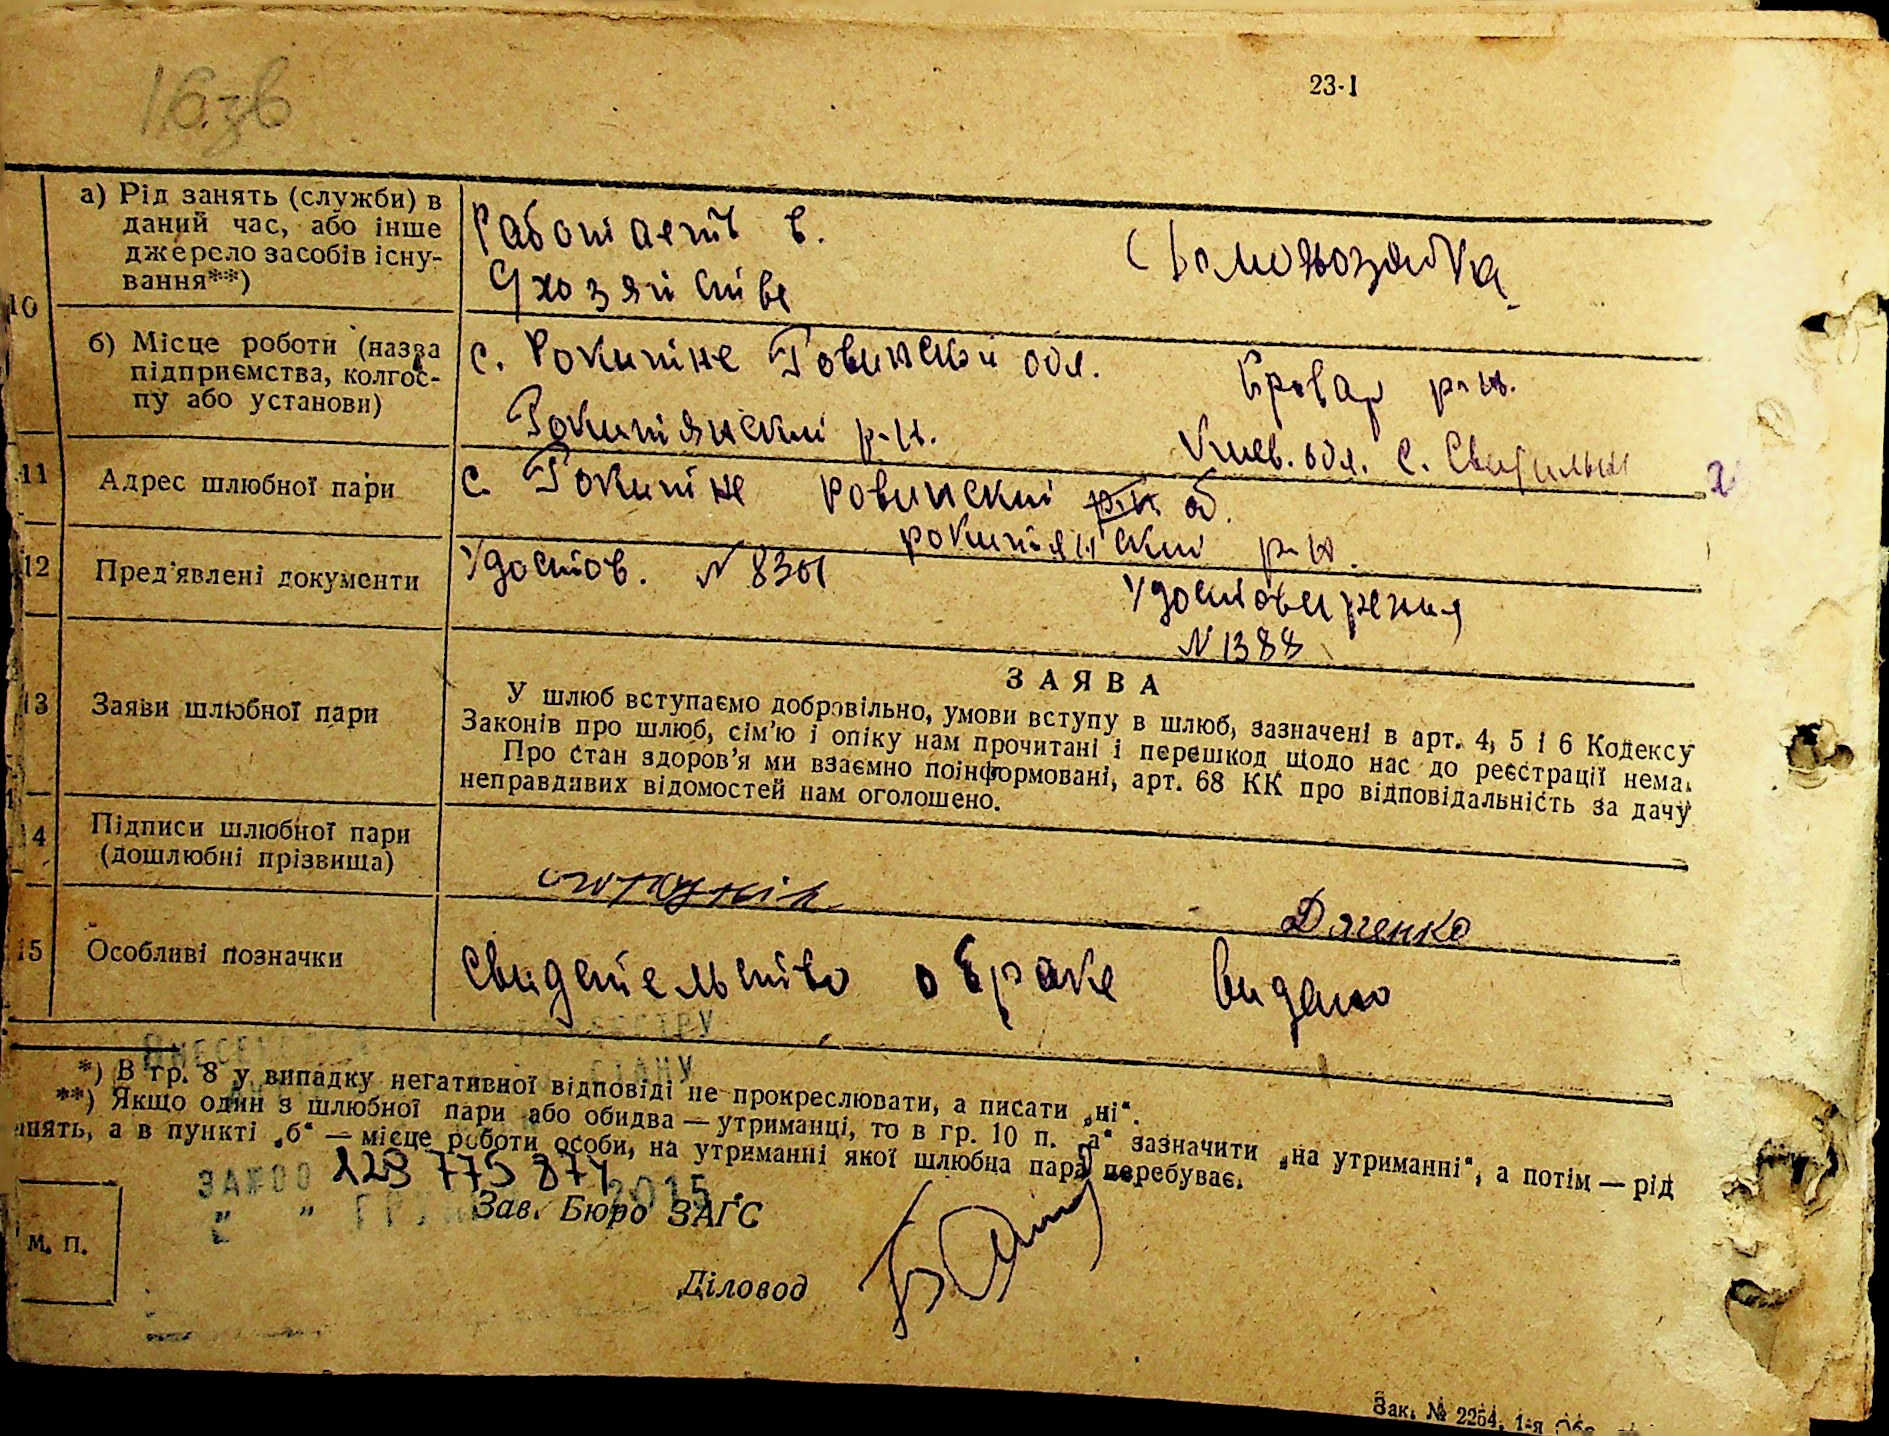 16.зв
23-1
10
а) Рід занять (служби) в
даний час, або інше
джерело засобів існу-
вання**)
Работает в.
Схозяйстве
Домохозяйка
б) Місце роботи (назва
підприємства, колгос-
пу або установи)
с. Рокитне Ровинской обл.
Рокитянский р-н.
Бровар р-н.
Киев. обл. с.
11
Адрес шлюбної пари
с. Рокитне ровинский об.
рокитянский р-н.
12
Пред'явлені документи
Удостов. N 8301
Удостоверения
N 1388
13
Заяви шлюбної пари
ЗАЯВА
У шлюб вступаємо добровільно, умови вступу в шлюб, зазначені в арт. 4, 5 і 6 Кодексу
Законів про шлюб, сім'ю і опіку нам прочитані і перешкод щодо нас до реєстрації нема.
Про стан здоров'я ми взаємно поінформовані, арт. 68 КК про відповідальність за дачу
неправдивих відомостей нам оголошено.
14
Підписи шлюбної пари
(дошлюбні прізвища)
Дяченко
15
Особливі позначки
Свидетельство о браке видано
*) В гр. 8 у випадку негативної відповіді не прокреслювати, а писати „ні“.
**) Якщо один з шлюбної пари або обидва — утриманці, то в гр. 10 п. „а“ зазначити „на утриманні“, а потім — рід
анять, а в пункті „б“ — місце роботи особи, на утриманні якої шлюбна пара перебуває.
СТАНУ
2015
Зав. Бюро ЗАГС
М. П.
Діловод
Зак. № 2254.